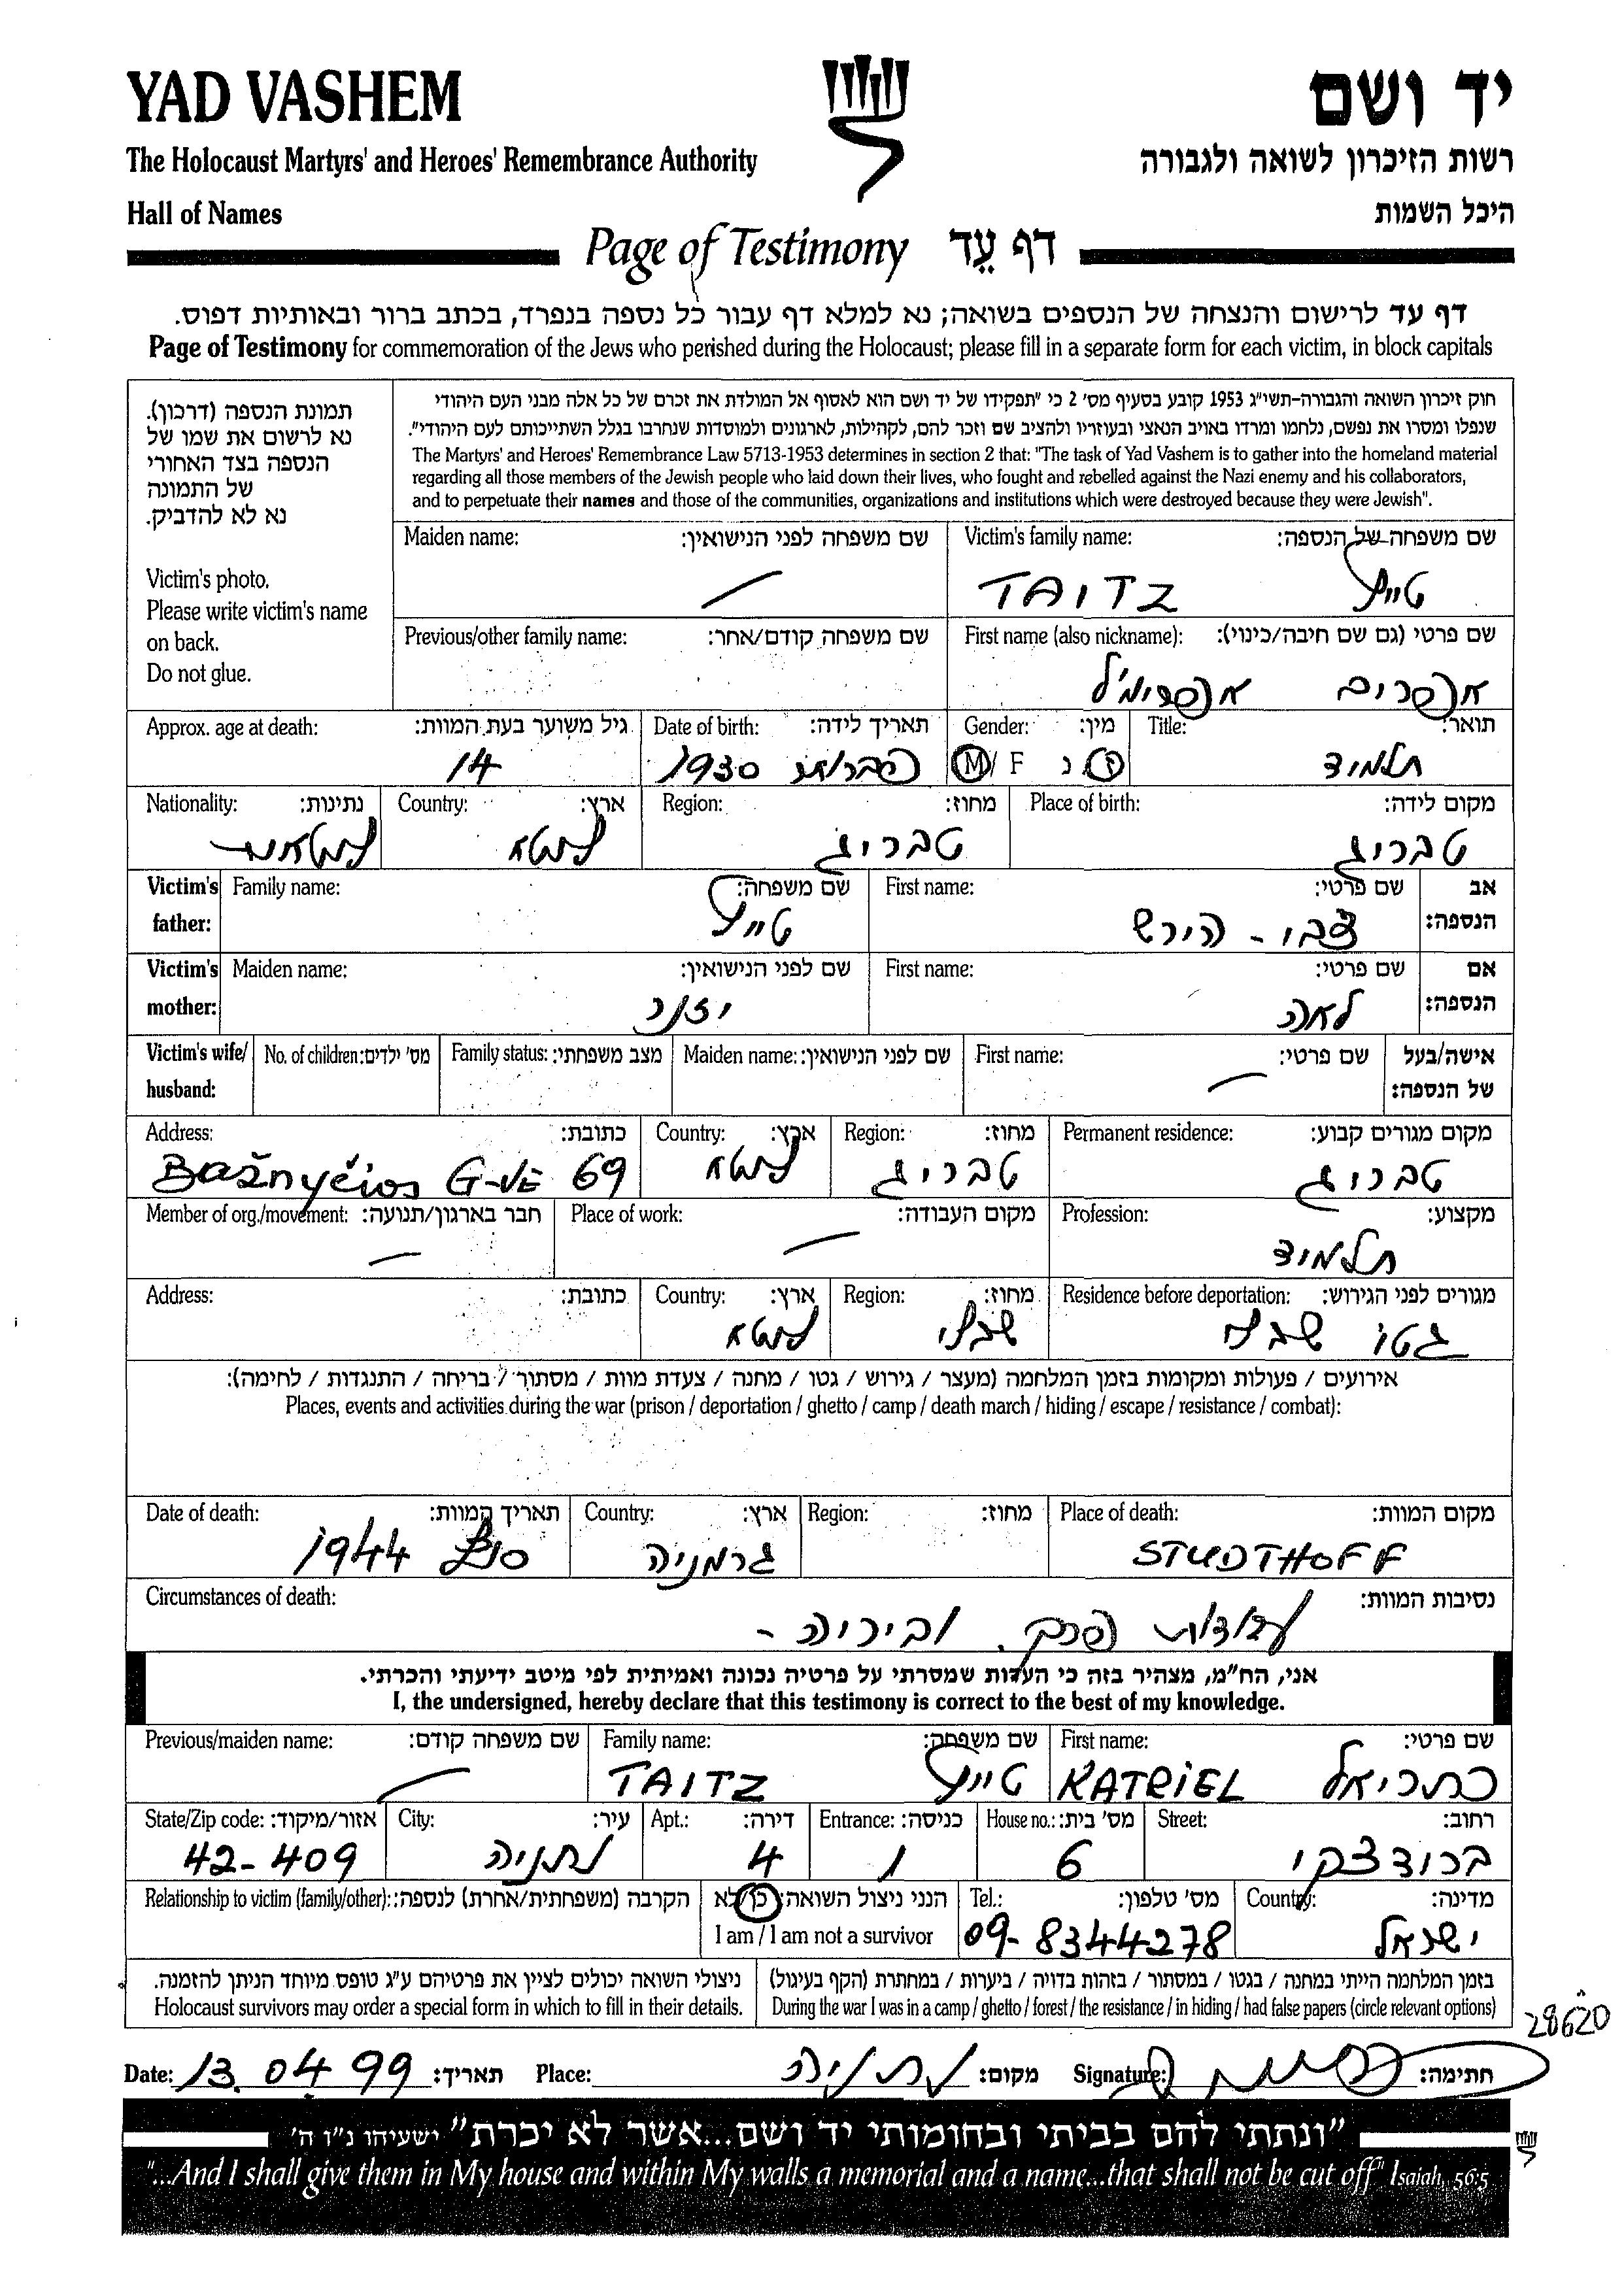 YAD VASHEM
יד ושם
The Holocaust Martyrs' and Heroes' Remembrance Authority
רשות הזיכרון לשואה ולגבורה
Hall of Names
היכל השמות
Page of Testimony דף עֵד
דף עד לרישום והנצחה של הנספים בשואה; נא למלא דף עבור כל נספה בנפרד, בכתב ברור ובאותיות דפוס.
Page of Testimony for commemoration of the Jews who perished during the Holocaust; please fill in a separate form for each victim, in block capitals
תמונת הנספה (דרכון).
נא לרשום את שמו של
הנספה בצד האחורי
של התמונה
נא לא להדביק.
Victim's photo.
Please write victim's name
on back.
Do not glue.
חוק זיכרון השואה והגבורה-תשי"ג 1953 קובע בסעיף מס' 2 כי "תפקידו של יד ושם הוא לאסוף אל המולדת את זכרם של כל אלה מבני העם היהודי
שנפלו ומסרו את נפשם, נלחמו ומרדו באויב הנאצי ובעוזריו ולהציב שם וזכר להם, לקהילות, לארגונים ולמוסדות שנחרבו בגלל השתייכותם לעם היהודי".
The Martyrs' and Heroes' Remembrance Law 5713-1953 determines in section 2 that: "The task of Yad Vashem is to gather into the homeland material
regarding all those members of the Jewish people who laid down their lives, who fought and rebelled against the Nazi enemy and his collaborators,
and to perpetuate their names and those of the communities, organizations and institutions which were destroyed because they were Jewish".
Maiden name: שם משפחה לפני הנישואין: Victim's family name: שם משפחה של הנספה:
TAITZ טייץ
Previous/other family name: שם משפחה קודם/אחר: First name (also nickname): שם פרטי (גם שם חיבה/כינוי):
אפרים
Approx. age at death: גיל משוער בעת המוות: Date of birth: תאריך לידה: Gender: מין: Title: תואר:
14 1930 M/ F ז נ תלמיד
Nationality: נתינות: Country: ארץ: Region: מחוז: Place of birth: מקום לידה:
ליטא טבריג טבריג
Victim's father: Family name: שם משפחה: First name: שם פרטי: אב הנספה:
טייץ צבי - הירש
Victim's mother: Maiden name: שם לפני הנישואין: First name: שם פרטי: אם הנספה:
יזנר לאה
Victim's wife/ husband: No. of children: מס' ילדים: Family status: מצב משפחתי: Maiden name: שם לפני הנישואין: First name: שם פרטי: אישה/בעל של הנספה:
Address: כתובת: Country: ארץ: Region: מחוז: Permanent residence: מקום מגורים קבוע:
Bažnyčios G-VE 69 ליטא טבריג טבריג
Member of org./movement: חבר בארגון/תנועה: Place of work: מקום העבודה: Profession: מקצוע:
תלמיד
Address: כתובת: Country: ארץ: Region: מחוז: Residence before deportation: מגורים לפני הגירוש:
ליטא שבלי גטו שבלי
אירועים / פעולות ומקומות בזמן המלחמה (מעצר / גירוש / גטו / מחנה / צעדת מוות / מסתור / בריחה / התנגדות / לחימה):
Places, events and activities during the war (prison / deportation / ghetto / camp / death march / hiding / escape / resistance / combat):
Date of death: תאריך המוות: Country: ארץ: Region: מחוז: Place of death: מקום המוות:
סוף 1944 גרמניה STUDTHOFF
Circumstances of death: נסיבות המוות:
עבודות פרך.
אני, הח"מ, מצהיר בזה כי העדות שמסרתי על פרטיה נכונה ואמיתית לפי מיטב ידיעתי והכרתי.
I, the undersigned, hereby declare that this testimony is correct to the best of my knowledge.
Previous/maiden name: שם משפחה קודם: Family name: שם משפחה: First name: שם פרטי:
TAITZ טייץ KATRiEL כתריאל
State/Zip code: אזור/מיקוד: City: עיר: Apt.: דירה: Entrance: כניסה: House no.: מס' בית: Street: רחוב:
42-409 נתניה 4 1 6 ברודצקי
Relationship to victim (family/other): הקרבה (משפחתית/אחרת) לנספה: הנני ניצול השואה: כן/לא Tel.: מס' טלפון: Country: מדינה:
I am / I am not a survivor 09-8344278 ישראל
ניצולי השואה יכולים לציין את פרטיהם ע"ג טופס מיוחד הניתן להזמנה. בזמן המלחמה הייתי במחנה / בגטו / במסתור / בזהות בדויה / ביערות / במחתרת (הקף בעיגול)
Holocaust survivors may order a special form in which to fill in their details. During the war I was in a camp / ghetto / forest / the resistance / in hiding / had false papers (circle relevant options)
28620
Date: 13.04.99 תאריך: Place: נתניה מקום: Signature: חתימה:
"ונתתי להם בביתי ובחומותי יד ושם...אשר לא יכרת" ישעיהו נ"ו ה'
"...And I shall give them in My house and within My walls a memorial and a name...that shall not be cut off" Isaiah, 56:5